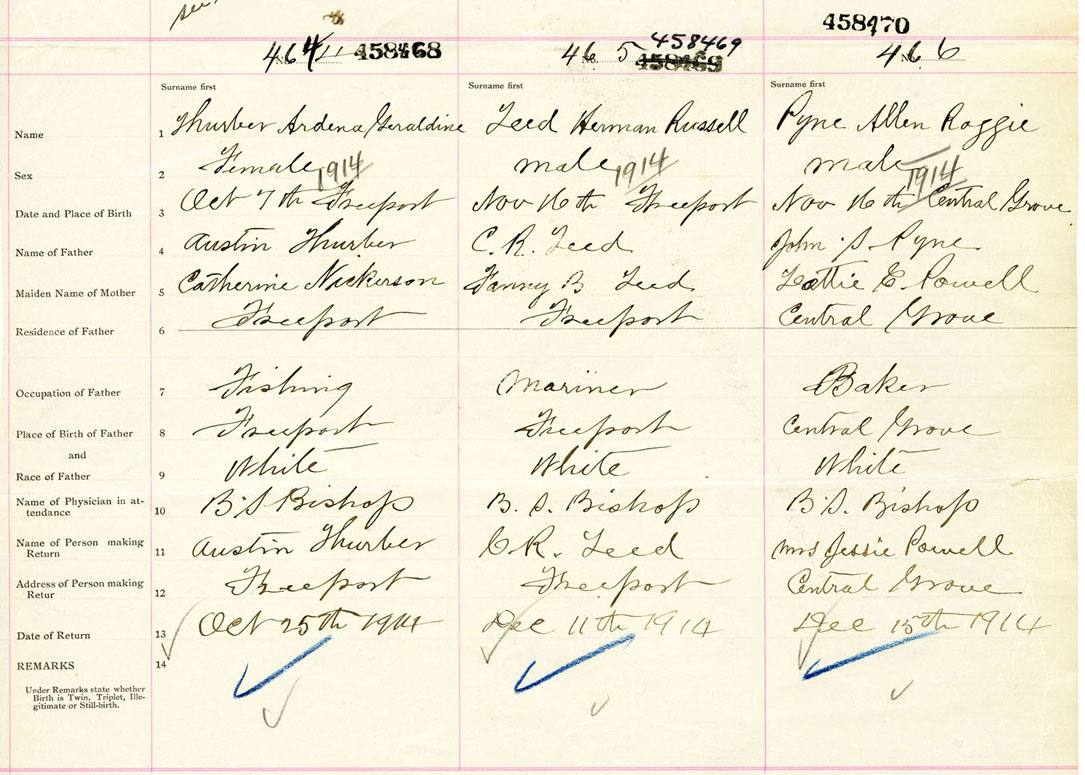 458468
458469
458469
458470
464
No. 465
No. 466
Surname first
Surname first
Surname first
Name 1 Thurber Ardena Geraldine
Teed Herman Russell
Pyne Allen Roggie
Sex 2 Female
male
male
1914
1914
1914
Date and Place of Birth 3 Oct 7th Freeport
Nov 16th Freeport
Nov 16th Central Grove
Name of Father 4 Austin Thurber
C. R. Teed
John S. Pyne
Maiden Name of Mother 5 Catherine Nickerson
Fanny B Teed
Lottie E. Powell
Residence of Father 6 Freeport
Freeport
Central Grove
Occupation of Father 7 Fishing
Mariner
Baker
Place of Birth of Father 8 Freeport
Freeport
Central Grove
and
Race of Father 9 White
White
White
Name of Physician in at-
tendance 10 B S Bishop
B. S. Bishop
B. S. Bishop
Name of Person making
Return 11 Austin Thurber
C. R. Teed
Mrs Jessie Powell
Address of Person making
Retur 12 Freeport
Freeport
Central Grove
Date of Return 13 Oct 25th 1914
Dec 11th 1914
Dec 15th 1914
REMARKS 14
Under Remarks state whether
Birth is Twin, Triplet, Ille-
gitimate or Still-birth.